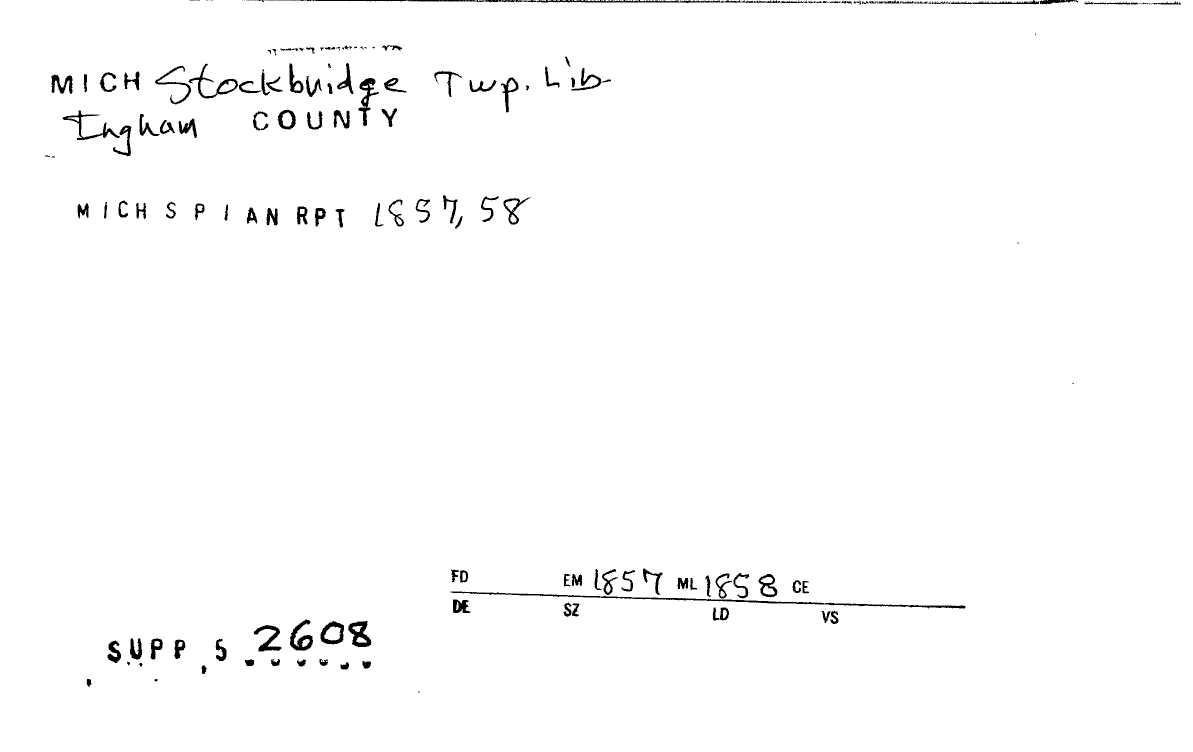 MICH Stockbridge Twp. Lib
Ingham COUNTY
MICH S P I AN RPT 1857, 58
FD EM 1857 ML 1858 CE
DE SZ LD VS
SUPP, 5 2608